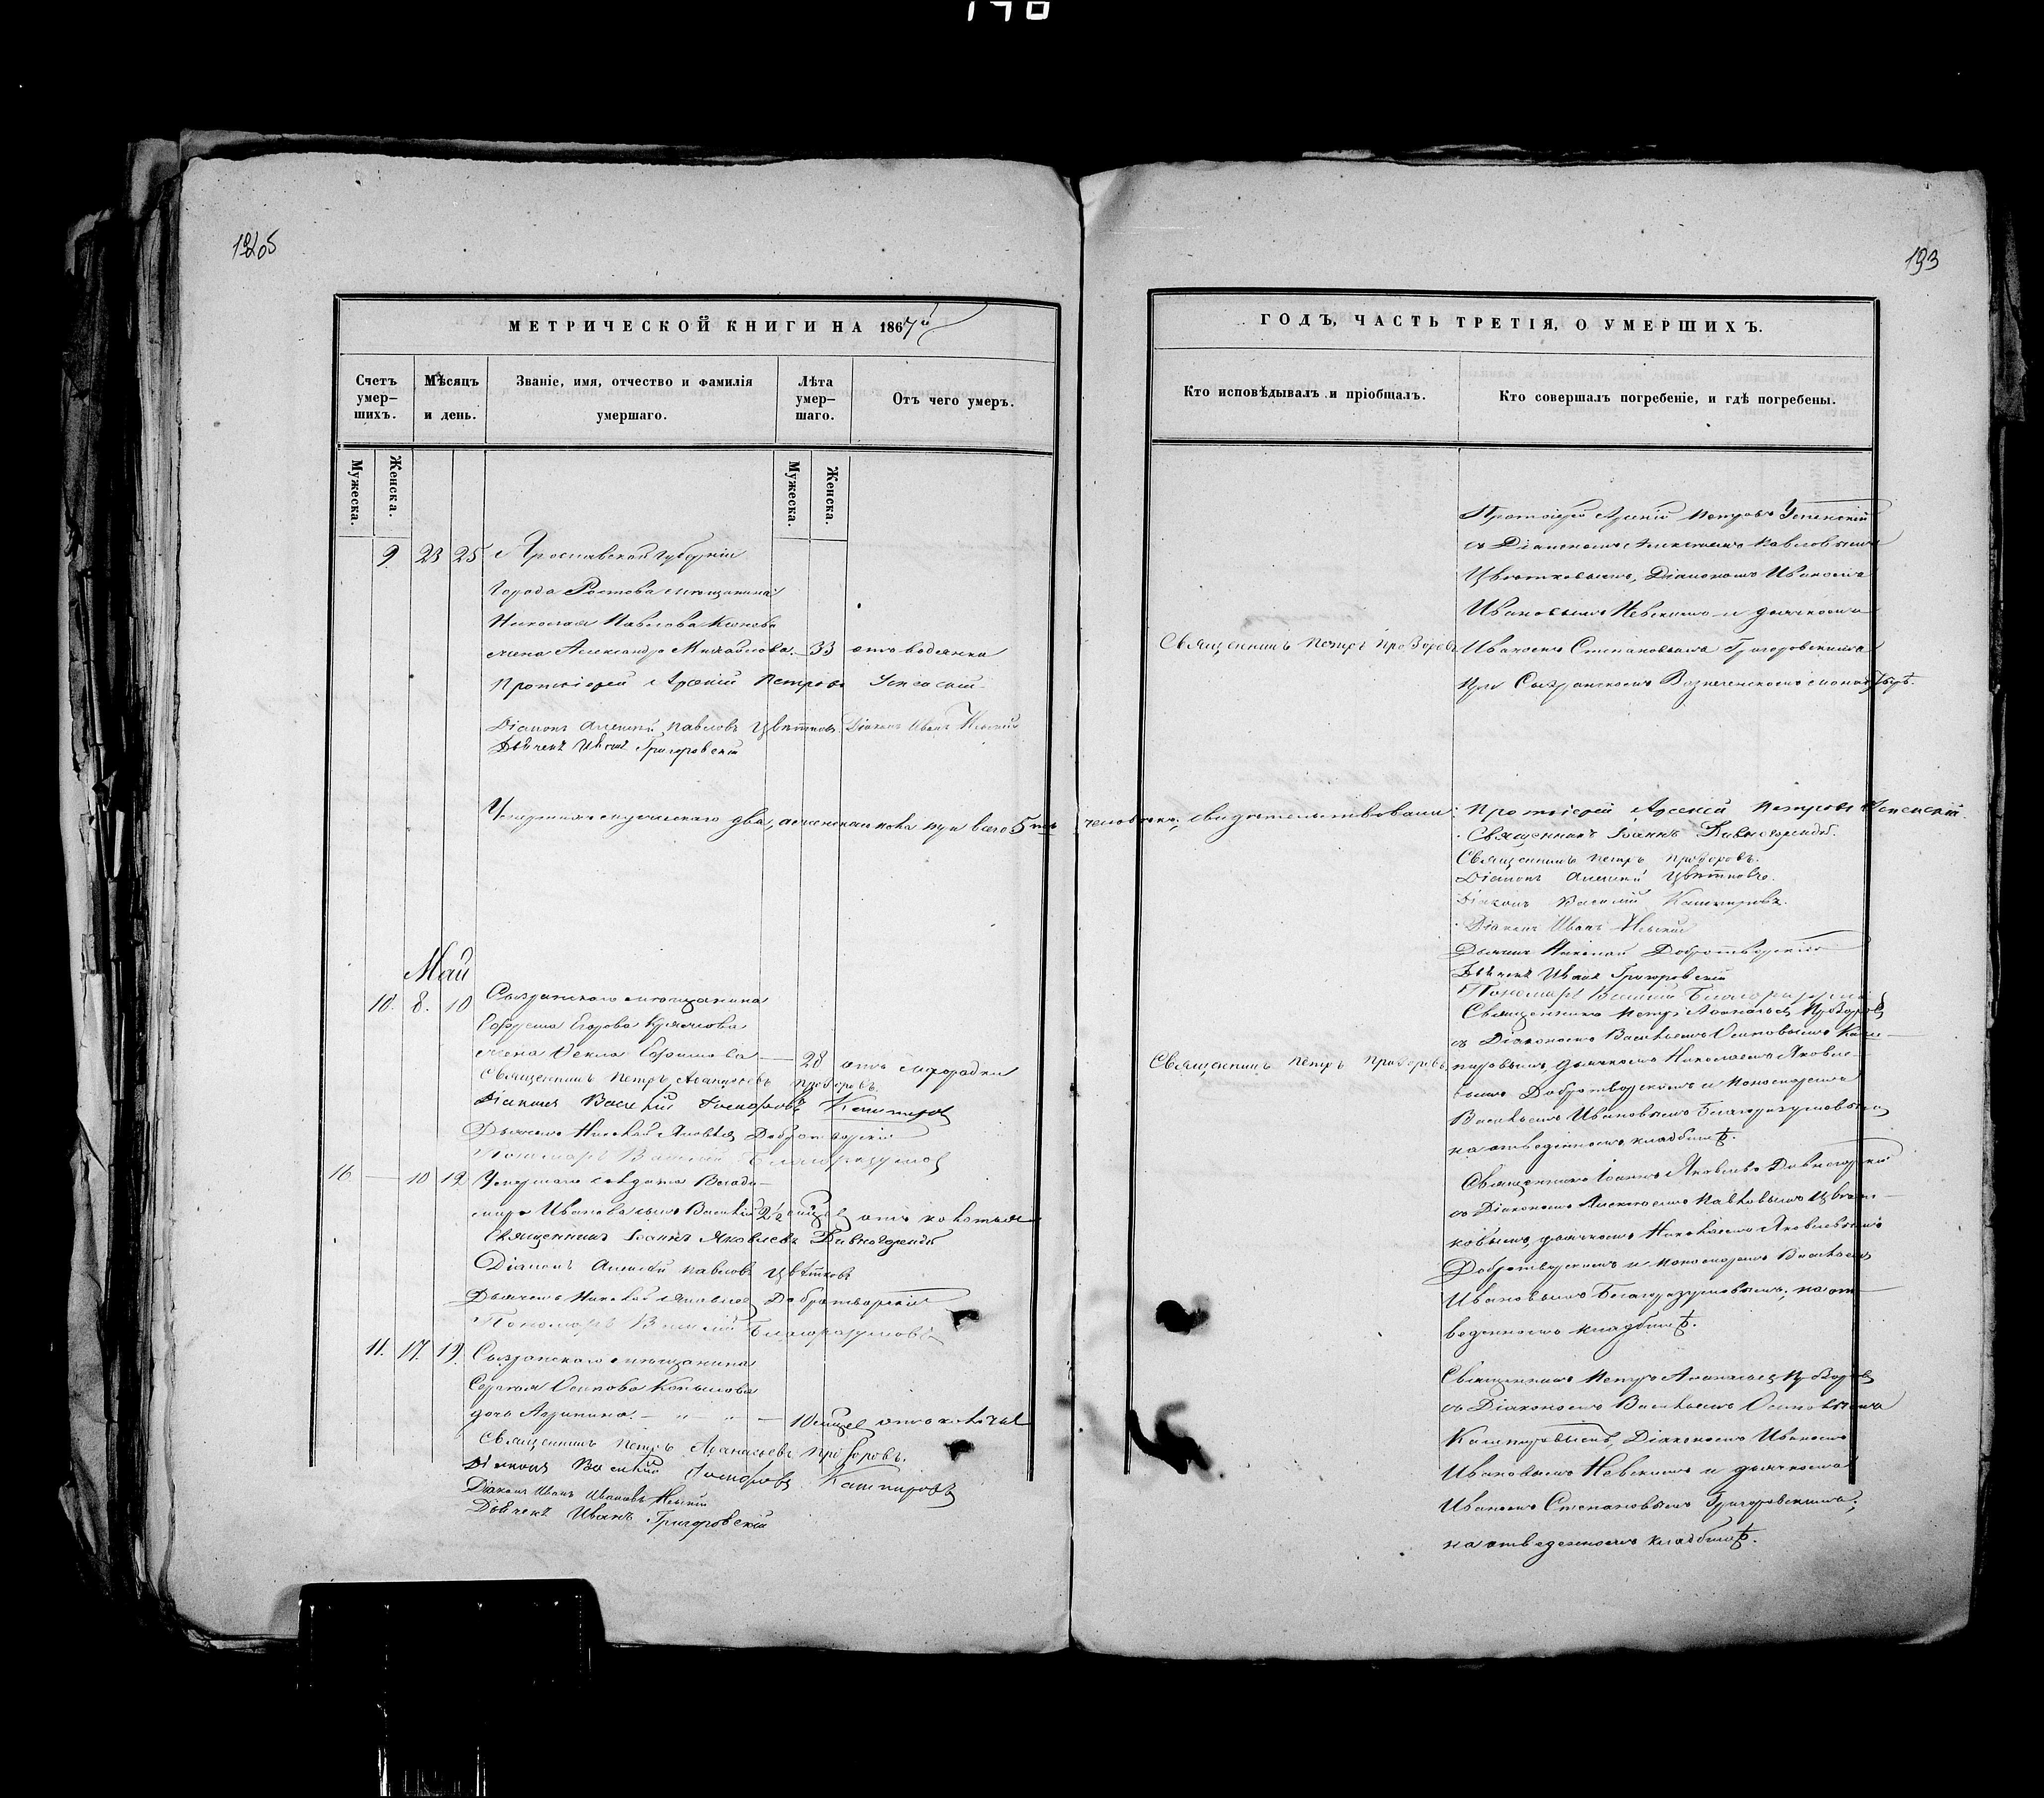 193
МЕТРИЧЕСКОЙ КНИГИ НА 1867й
ГОДЪ, ЧАСТЬ ТРЕТІЯ, О УМЕРШИХЪ.
Счетъ умер–шихъ.
Мѣсяцъ и день.
Званіе, имя, отчество и фамилія умершаго.
Лѣта умер–шаго.
Отъ чего умеръ.
Кто исповѣдывалъ и пріобщалъ.
Кто совершалъ погребеніе, и гдѣ погребены.
Мужеска.
Женска.
Мужеска.
Женска.
9. 23 25 Ярославской губерніи
города Ростова мѣщанина
Николая Павлова
жена Александра Михайлова. 33 отъ водянки
Протоіерей Арсеній Петровъ
Діаконъ Алексѣй Павловъ Цвѣтковъ. Діаконъ Иванъ Невскій
Дьячекъ Иванъ Григоровскій
Священникъ Петръ Прозоровъ
Протоіерей Арсеній Петровъ Успенскій
съ Діакономъ Алексѣемъ Павловымъ
Цвѣтковымъ, Діакономъ Иваномъ
Ивановымъ Невскимъ и дьячкомъ
Иваномъ Степановымъ Григоровскимъ
при Сызранскомъ Вознесенскомъ
мужескаго два, а женска при всего 5ть человѣкъ, свидѣтельствовали:
Протоіерей Арсеній Петровъ Успенскій.
Священникъ Іоаннъ Дивногорскій.
Священникъ Петръ Прозоровъ.
Діаконъ Алексѣй Цвѣтковъ.
Діаконъ Василій Кашпировъ.
Діаконъ Иванъ Невскій
Дьячекъ Николай Добротворскій
Дьячекъ Иванъ Григоровскій
Пономарь Василій Благоразумовъ
Май
10. 8. 10 Сызранскаго мѣщанина
Егорова
жена Ѳекла — 28 отъ лихорадки
Священникъ Петръ Аѳанасьевъ Прозоровъ.
Діаконъ Василій Кашпировъ
Дьячекъ Николай Яковлевъ Добротворскій
Пономарь Василій Благоразумовъ
Священникъ Петръ Прозоровъ
Священникъ Петръ Аѳанасьевъ Прозоровъ
съ Діакономъ Васильемъ Осиповымъ Каш–
пировымъ, дьячкомъ Николаемъ Яковле–
вымъ Добротворскимъ и пономаремъ
Васильемъ Ивановымъ Благоразумовымъ
на отведенномъ кладбищѣ.
16 — 10 12 Умершаго солдата
Иванова сынъ Василій 2½
Священникъ Іоаннъ Яковлевъ Дивногорскій
Діаконъ Алексѣй Павловъ Цвѣтковъ
Дьячекъ Николай Яковлевъ Добротворскій
Пономарь Василій Благоразумовъ
Священникъ Іоаннъ Яковлевъ Дивногорскій
съ Діакономъ Алексѣемъ Павловымъ Цвѣт–
ковымъ, дьячкомъ Николаемъ Яковлевымъ
Добротворскимъ и пономаремъ Васильемъ
Ивановымъ Благоразумовымъ, на от–
веденномъ кладбищѣ.
11. 17. 19. Сызранскаго мѣщанина
Осипова
дочь 10
Священникъ Петръ Аѳанасьевъ Прозоровъ.
Діаконъ Василій Кашпировъ
Діаконъ Иванъ Ивановъ Невскій
Дьячекъ Иванъ Григоровскій
Священникъ Петръ Аѳанасьевъ Прозоровъ
съ Діакономъ Васильемъ Осиповымъ
Кашпировымъ, Діакономъ Иваномъ
Ивановымъ Невскимъ и дьячкомъ
Иваномъ Степановымъ Григоровскимъ,
на отведенномъ кладбищѣ.